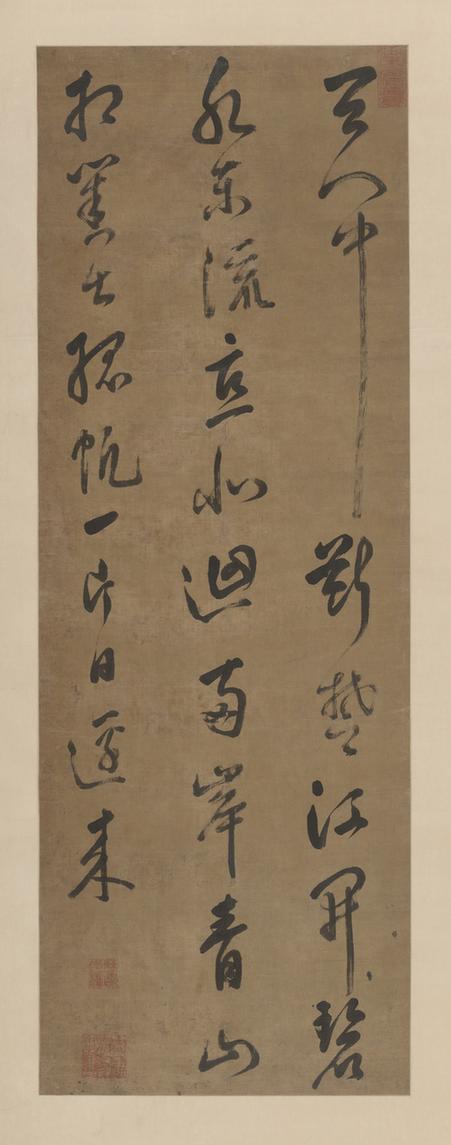 天門中斷楚江開碧
水東流直北迴兩岸青山
相對出孤帆一片日邊來